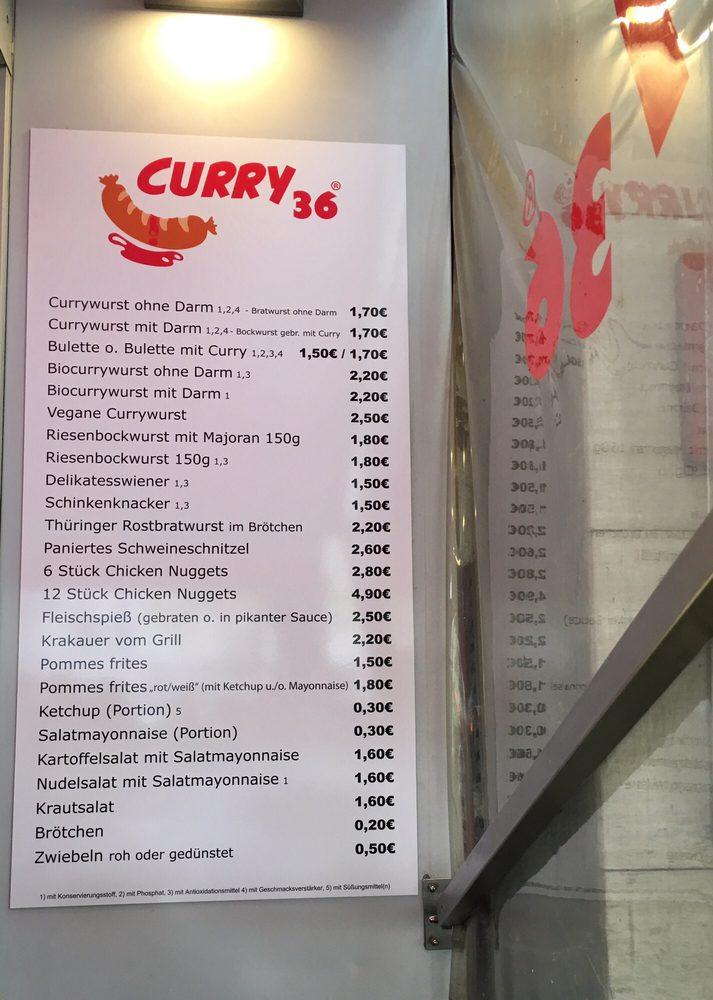 CURRY 36®
Currywurst ohne Darm 1,2,4 - Bratwurst ohne Darm 1,70€
Currywurst mit Darm 1,2,4 - Bockwurst gebr. mit Curry 1,70€
Bulette o. Bulette mit Curry 1,2,3,4 1,50€ / 1,70€
Biocurrywurst ohne Darm 1,3 2,20€
Biocurrywurst mit Darm 1 2,20€
Vegane Currywurst 2,50€
Riesenbockwurst mit Majoran 150g 1,80€
Riesenbockwurst 150g 1,3 1,80€
Delikatesswiener 1,3 1,50€
Schinkenknacker 1,3 1,50€
Thüringer Rostbratwurst im Brötchen 2,20€
Paniertes Schweineschnitzel 2,60€
6 Stück Chicken Nuggets 2,80€
12 Stück Chicken Nuggets 4,90€
Fleischspieß (gebraten o. in pikanter Sauce) 2,50€
Krakauer vom Grill 2,20€
Pommes frites 1,50€
Pommes frites „rot/weiß" (mit Ketchup u./o. Mayonnaise) 1,80€
Ketchup (Portion) 5 0,30€
Salatmayonnaise (Portion) 0,30€
Kartoffelsalat mit Salatmayonnaise 1,60€
Nudelsalat mit Salatmayonnaise 1 1,60€
Krautsalat 1,60€
Brötchen 0,20€
Zwiebeln roh oder gedünstet 0,50€
1) mit Konservierungsstoff, 2) mit Phosphat, 3) mit Antioxidationsmittel 4) mit Geschmacksverstärker, 5) mit Süßungsmittel(n)
36